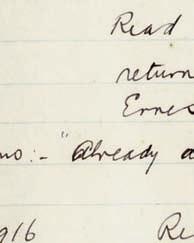 Read
return
Ernes
no:- "Already a
916 Re